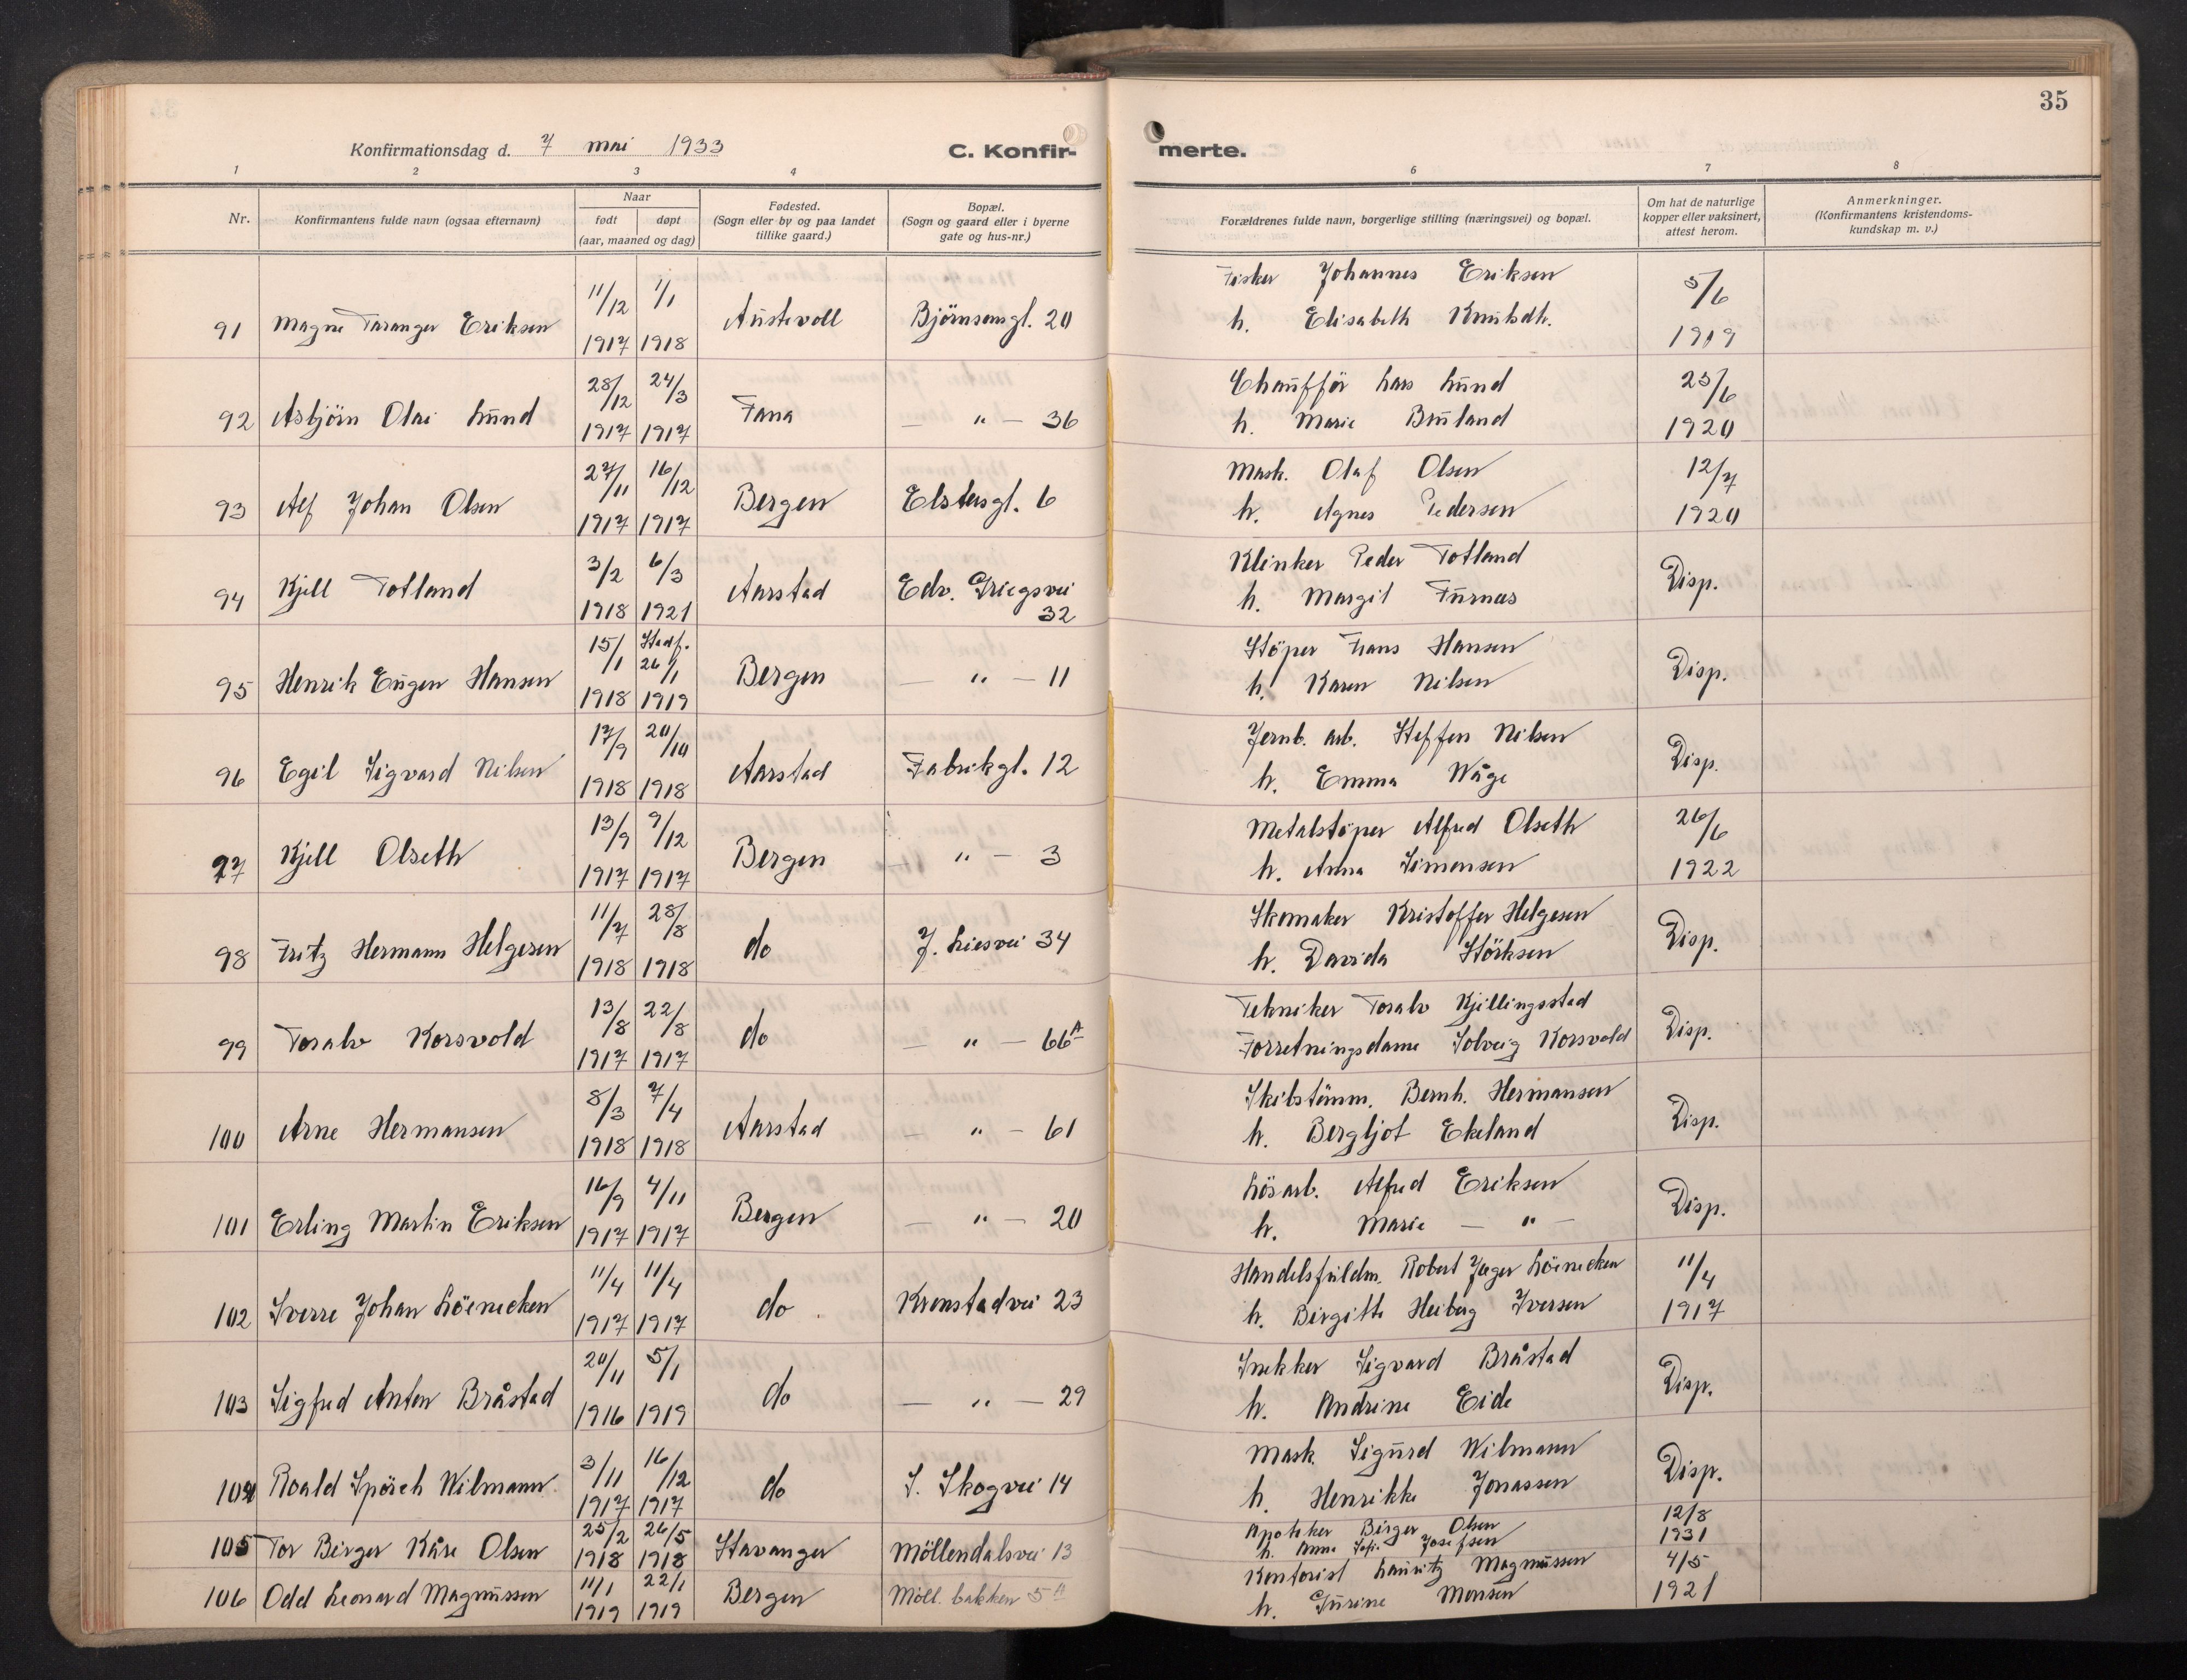 35
Konfirmationsdag d. 7 mai 1933
C. Konfir-
merte.
1 2 3 4 6 7 8
Nr.
Konfirmantens fulde navn (ogsaa efternavn)
Naar
født døpt
(aar, maaned og dag)
Fødested.
(Sogn eller by og paa landet
tillike gaard.)
Bopæl.
(Sogn og gaard eller i byerne
gate og hus-nr.)
Forældrenes fulde navn, borgerlige stilling (næringsvei) og bopæl.
Om hat de naturlige
kopper eller vaksinert,
attest herom.
Anmerkninger.
(Konfirmantens kristendoms-
kundskap m. v.)
11/12 1/1 Fisker Johannes Eriksen 5/6
91 Magne Taranger Eriksen Austevoll Björnsonsgt. 20 h. Elisabeth Knutsdtr.
1917 1918 1919
28/12 24/3 Chauffør Lars Lund 23/6
92 Asbjörn Olai Lund Fana — " — 36 h. Marie Bruland
1917 1917 1920
27/11 16/12 Mask. Olaf Olsen 12/7
93 Alf Johan Olsen Bergen Elstersgt. 6 h. Agnes Pedersen
1917 1917 1920
3/2 6/3 Klinker Peder Totland
94 Kjell Totland Aarstad Edv. Griegsvei 32 h. Margit Furnes Disp.
1918 1921
15/1 Stadf. 26/1 Støper Frans Hansen
95 Henrik Eugen Hansen Bergen — " — 11 h. Karen Nilsen Disp.
1918 1919
17/9 20/10 Jernb. arb. Steffen Nilsen
96 Egil Sigvard Nilsen Aarstad Fabrikgt. 12 h. Emma Våge Disp.
1918 1918
13/9 9/12 Metalstøper Alfred Olseth 26/6
97 Kjell Olseth Bergen — " — 3 h. Anna Simonsen
1917 1917 1922
11/7 28/8 Skomaker Kristoffer Helgesen
98 Fritz Hermann Helgesen do J. Liesvei 34 h. Davida Störksen Disp.
1918 1918
13/8 22/8 Tekniker Toralv Kjellingsstad
99 Toralv Korsvold do — " — 66A Forretningsdame Solveig Korsvold Disp.
1917 1917
8/3 7/4 Skibstömm. Bernh. Hermansen
100 Arne Hermansen Aarstad — " — 61 h. Bergljot Ekeland Disp.
1918 1918
16/9 4/11 Lösarb. Alfred Eriksen
101 Erling Martin Eriksen Bergen — " — 20 h. Marie — " — Disp.
1917 1917
11/4 11/4 Handelsfuldm. Robert Jæger Löenecken 11/4
102 Sverre Johan Löenecken do. Kronstadvei 23 h. Birgitte Heiberg Iversen
1917 1917 1917
20/11 5/1 Snekker Sigvard Bråstad
103 Sigfred Anton Bråstad do — " — 29 h. Andrine Eide Disp.
1916 1919
3/11 16/12 Mask. Sigurd Wilmann
104 Roald Spörch Wilmann do S. Skogvei 14 h. Henrikke Jonassen Disp.
1917 1917
25/2 26/5 Apoteker Birger Olsen 12/8
105 Tor Birger Kåre Olsen Stavanger Möllendalsvei 13 h. Anne Sofi. Josefsen
1918 1918 1931
11/1 22/1 Kontorist Lauritz Magnussen 4/5
106 Odd Leonard Magnussen Bergen Möll. bakken 5A h. Gurine Monsen
1919 1919 1921